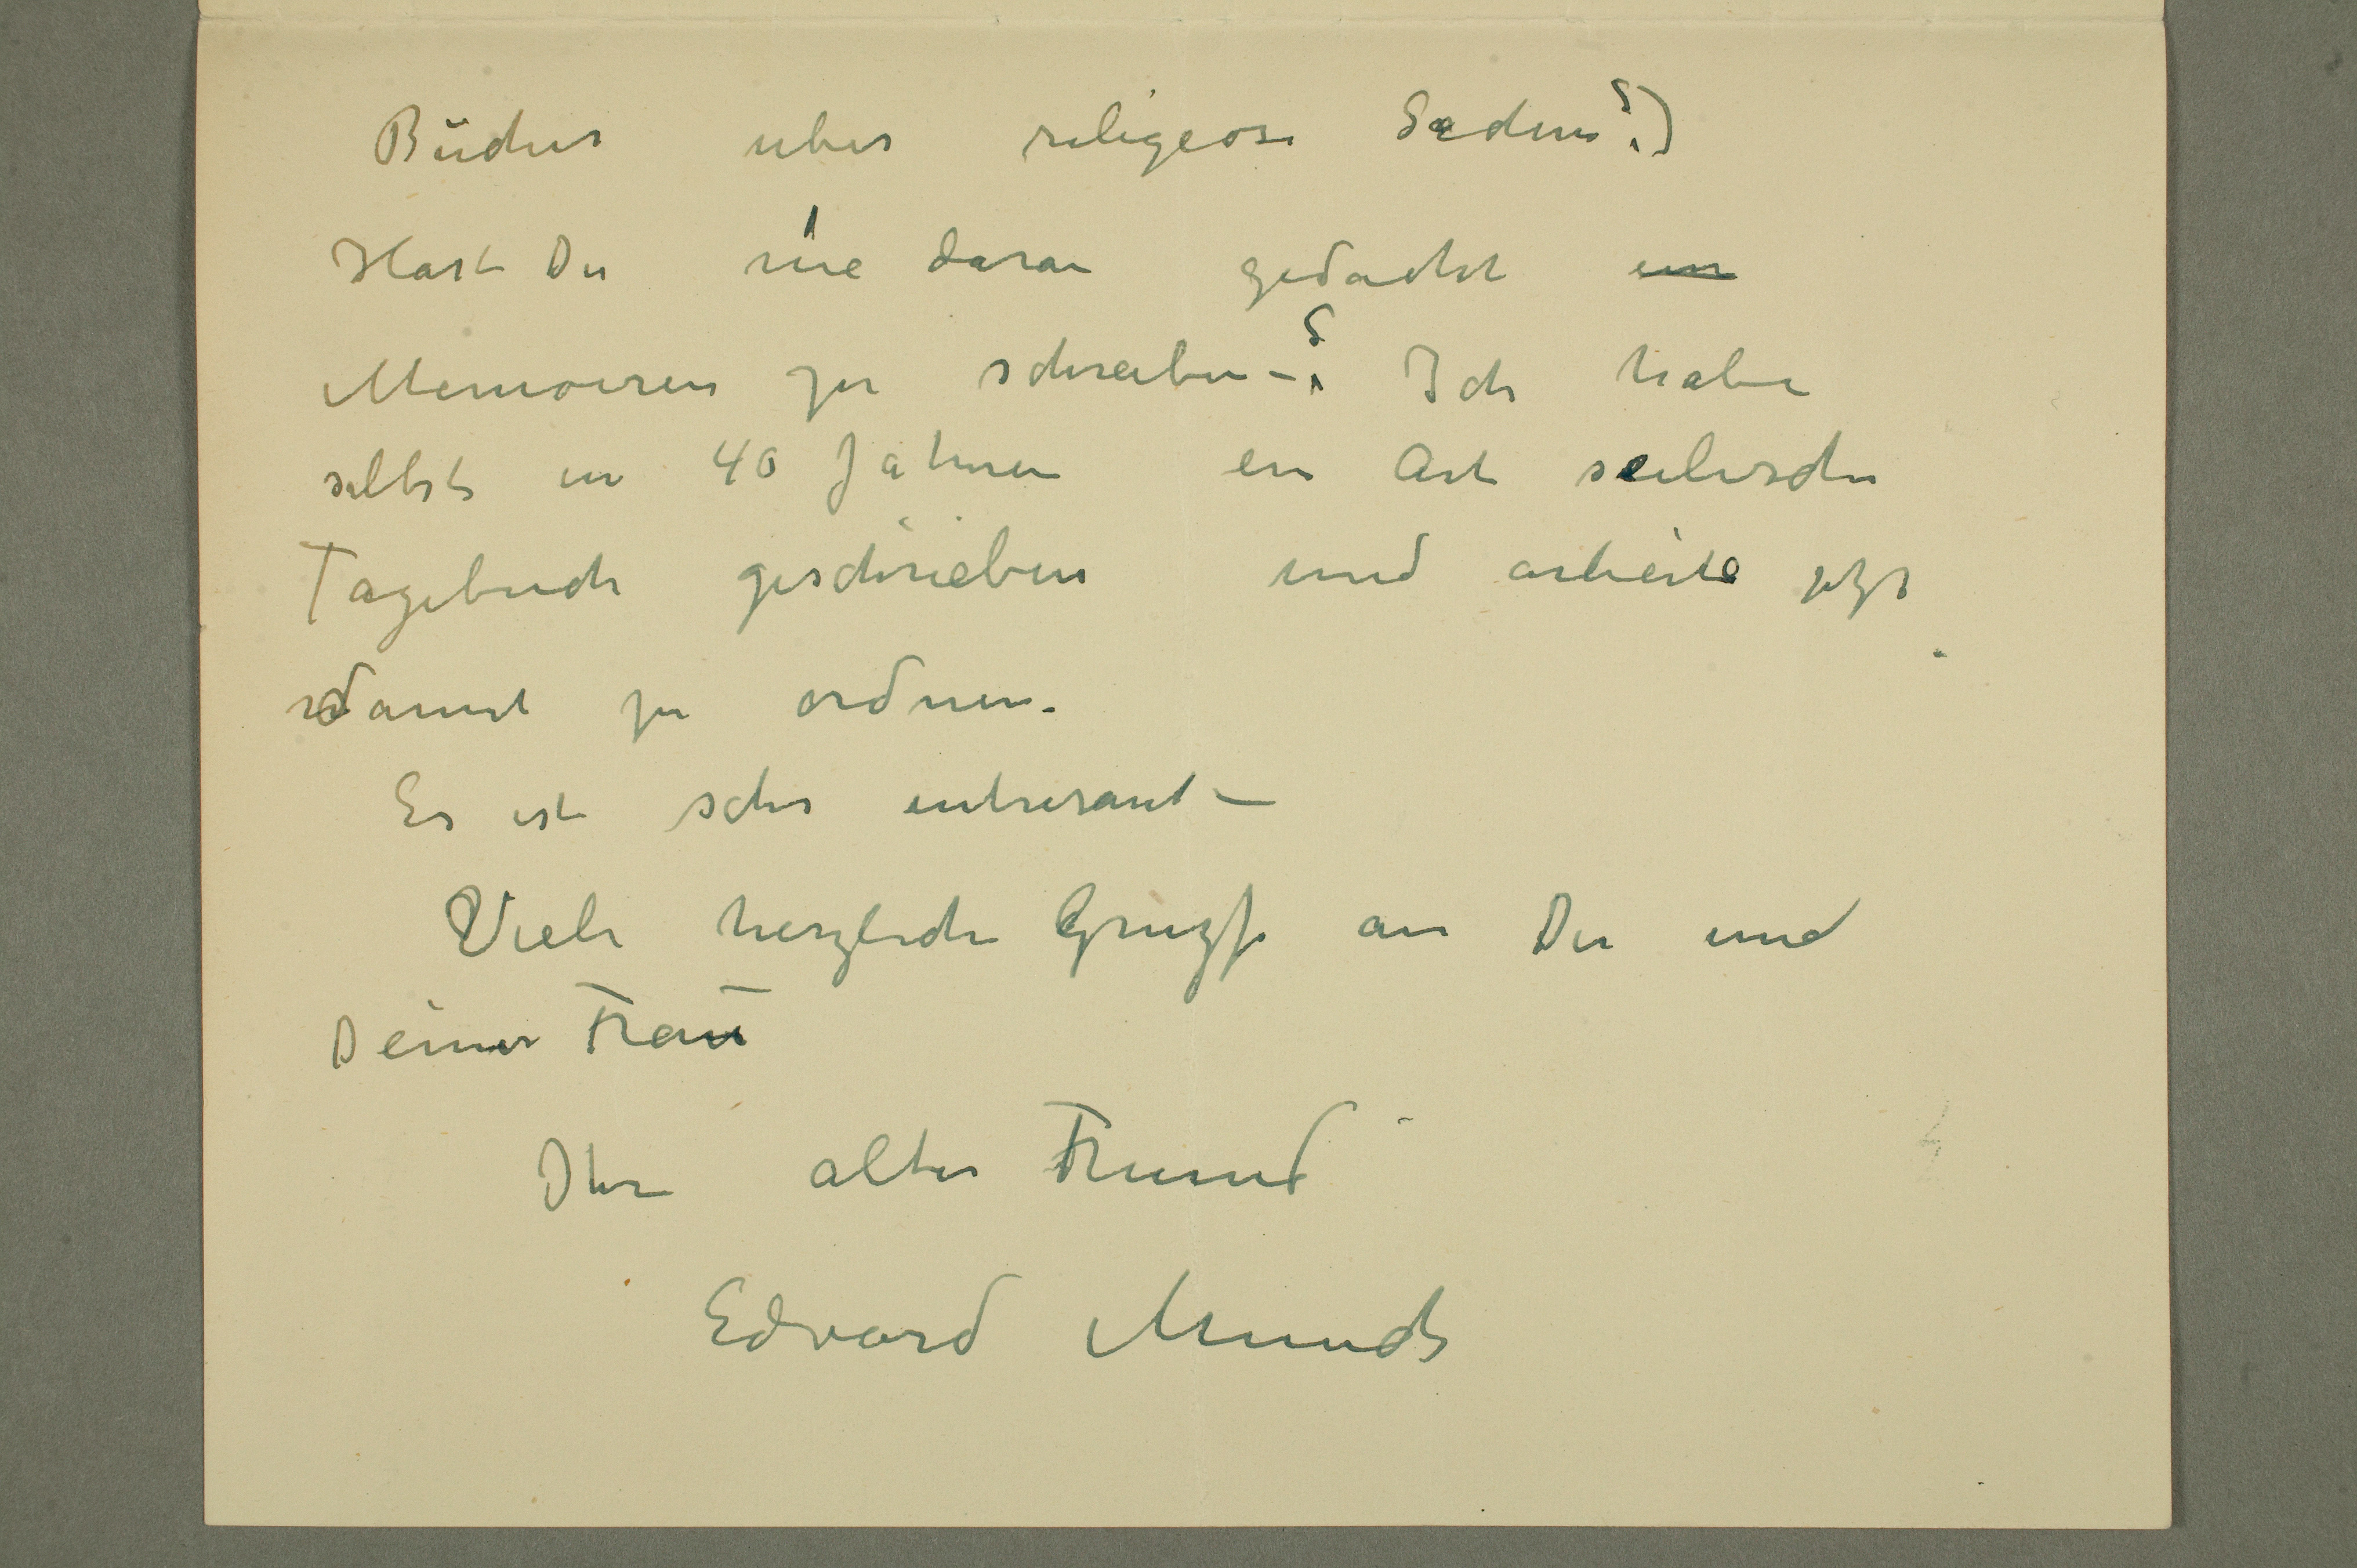 Bücher uber religeose Sachen?)
Hast Du nie daran gedacht
Memoiren zu schreiben –? Ich habe
selbst in 40 Jahren en Art seelische
Tagebuch geschrieben und arbeite jetzt
damit zu ordnen.
Es ist sehr intresant –
Viele herzliche Gruzse an Du und
Deiner Frau
Ihre alter Freund
Edvard Munch